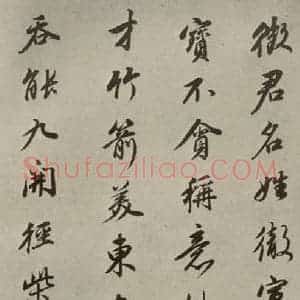 徵君名姓徹
寶不貪稱意
才竹箭美東
吞能九開徑柴
Shufaziliao.com